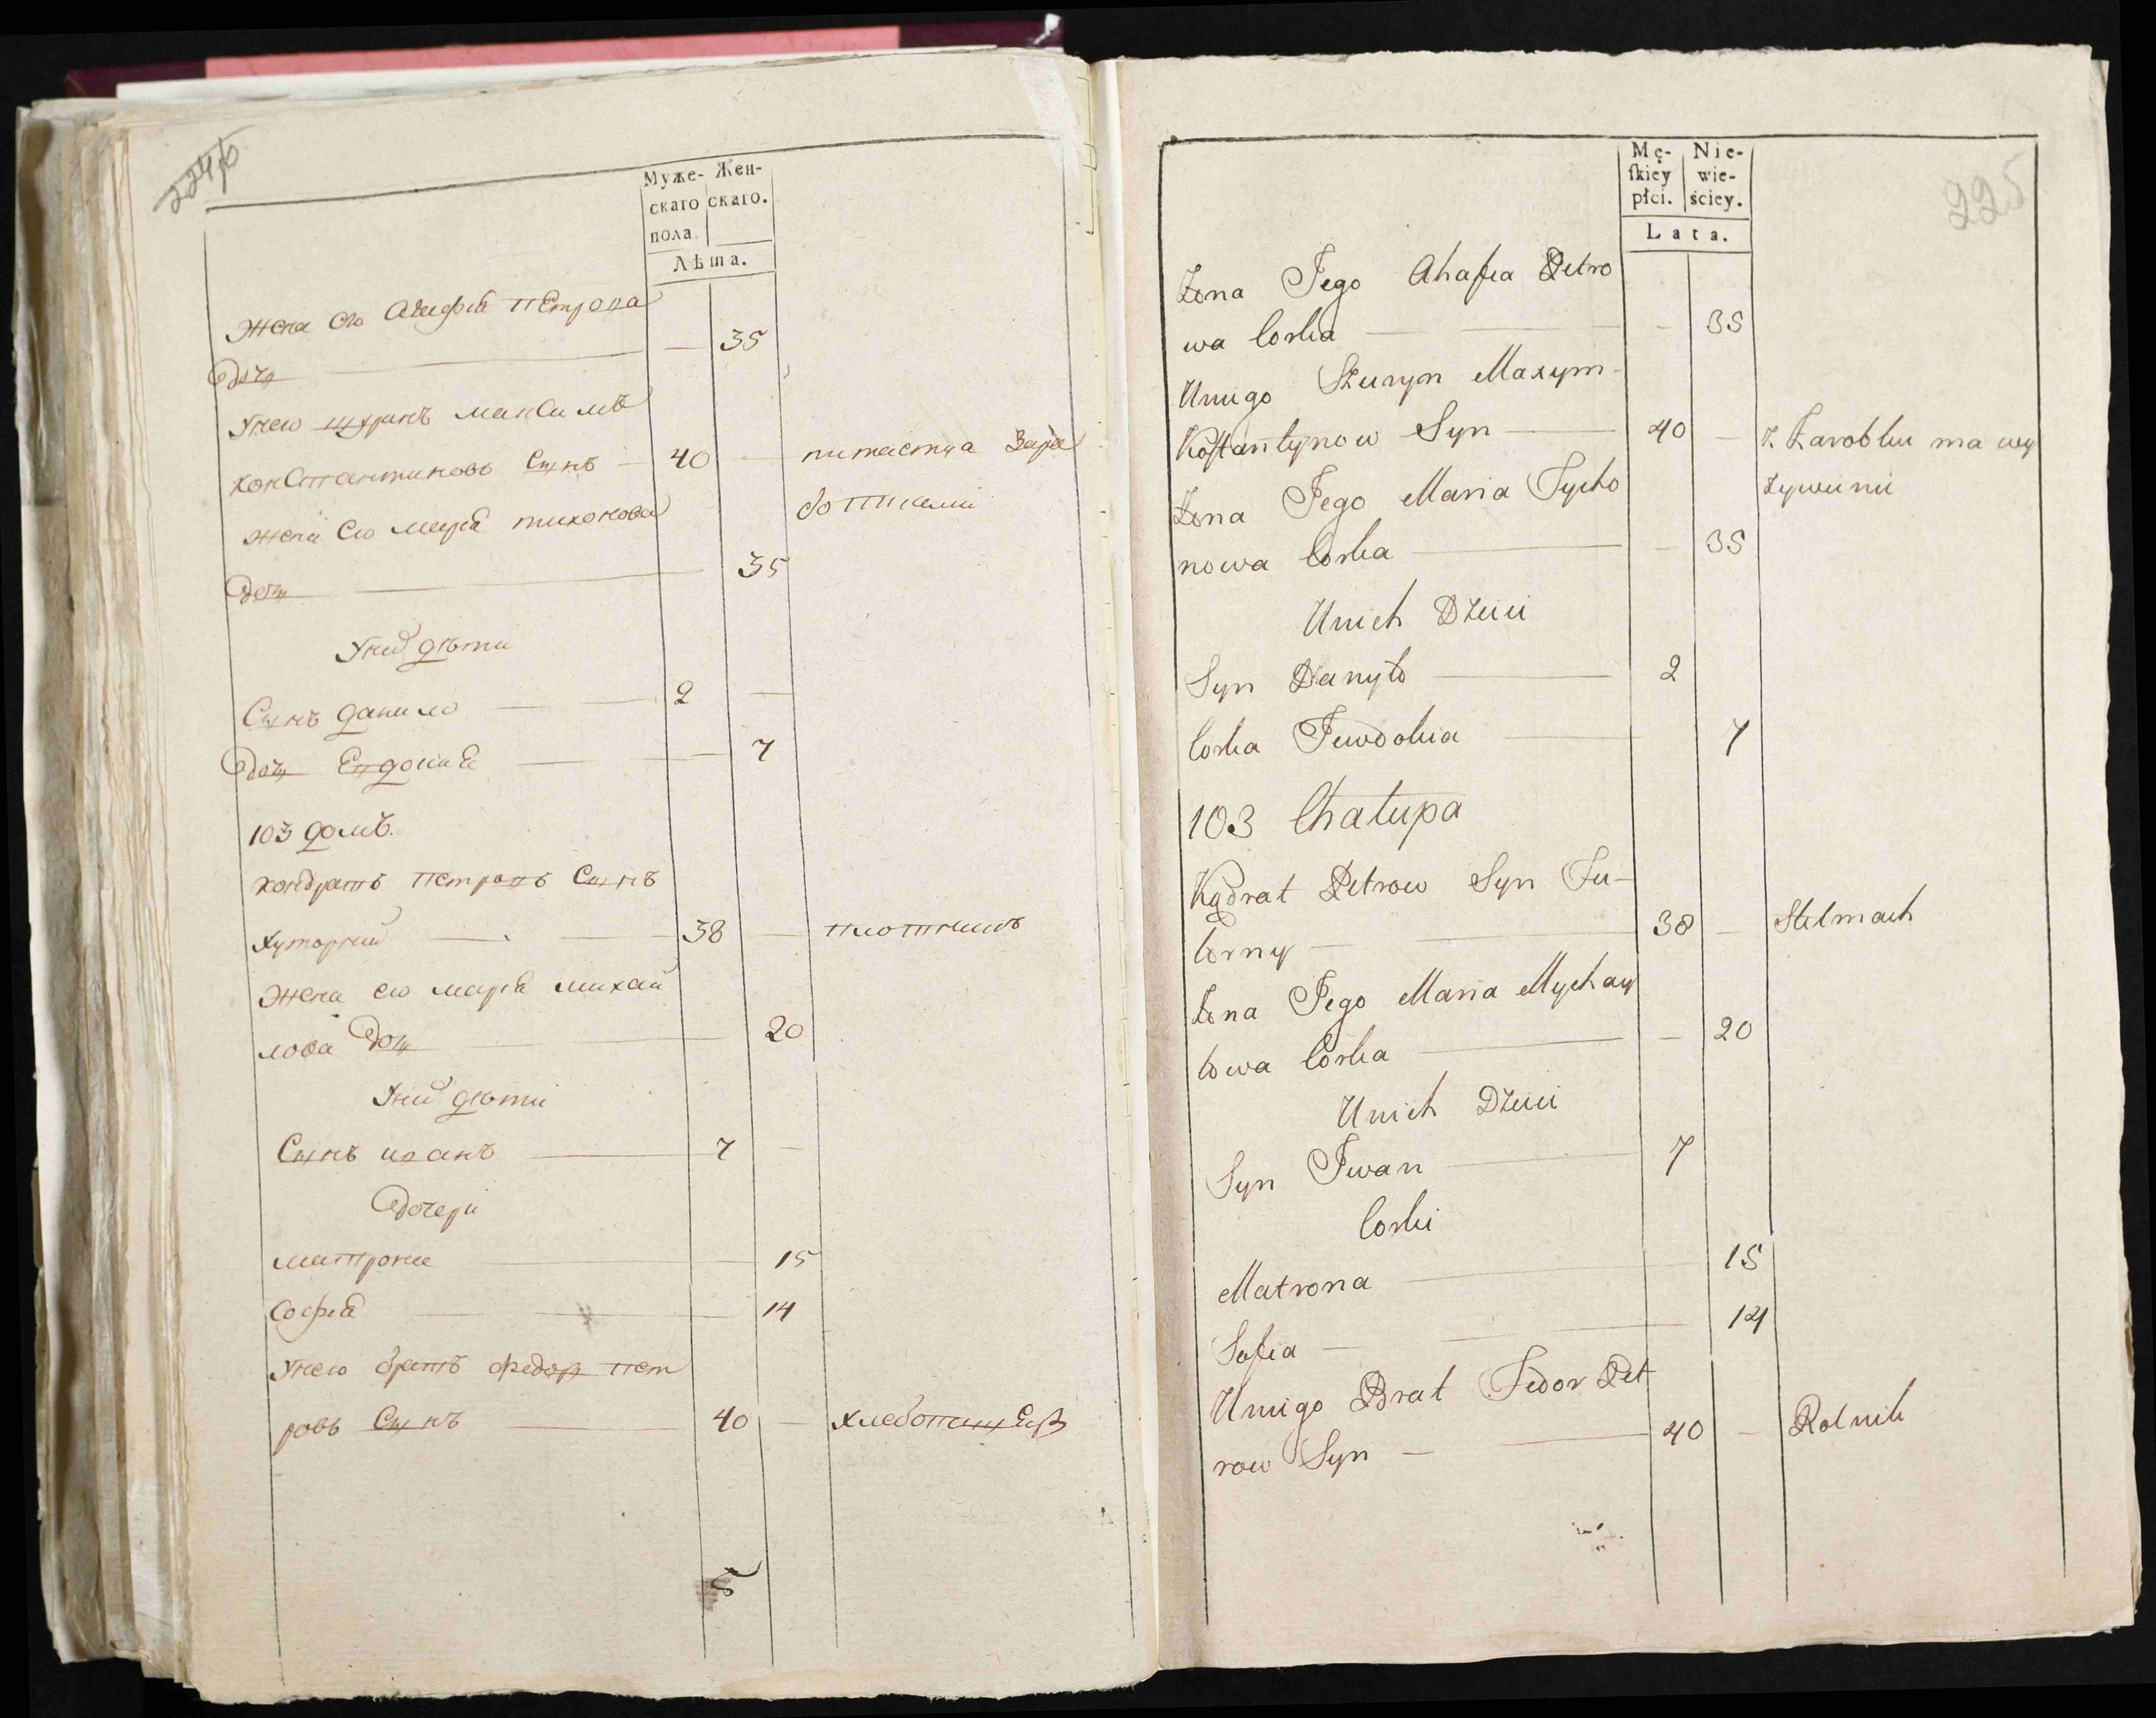 224 об
Муже- Жен-
скаго скаго.
пола.
Лѣта.
Жена его Агафиа Петрова
дочь — 35
Унего щуринъ максимъ
константиновъ Сынъ — 40 — питаетца Зара
ботками
жена Его мариа тихонова
дочь — 35
Уних дѣти
Сынъ данило — 2 —
дочь Евдокиа — 7
103 домъ.
кондратъ петровъ Сынъ
хуторний — 38 — плотникъ
Жена его мариа михай
лова дочь — 20
Уних дѣти
Сынъ иванъ — 7 —
дочери
матрона — 15
Софиа — 14
Унего братъ федор пет
ровъ Сынъ — 40 — хлебопашЕцъ
225
Mę- Nie-
ſkiey wie-
płci. ściey.
Lata.
Żona Jego Ahafia Petro
wa Corka — 35
Uniego Szuryn Maxym
Kostantynow Syn — 40 — z Zarobku ma wy
żywienie
Żona Jego Maria Tycho
nowa Corka — 35
Unich Dzieci
Syn Danyło — 2
Corka Jewdokia — 7
103 Chałupa
Kądrat Petrow Syn Fu-
torny — 38 — Stelmach
Żona Jego Maria Mychay
łowa Corka — 20
Unich Dzieci
Syn Iwan — 7
Corki
Matrona — 15
Sofia — 14
Uniego Brat Fedor Pet
row Syn — 40 — Rolnik